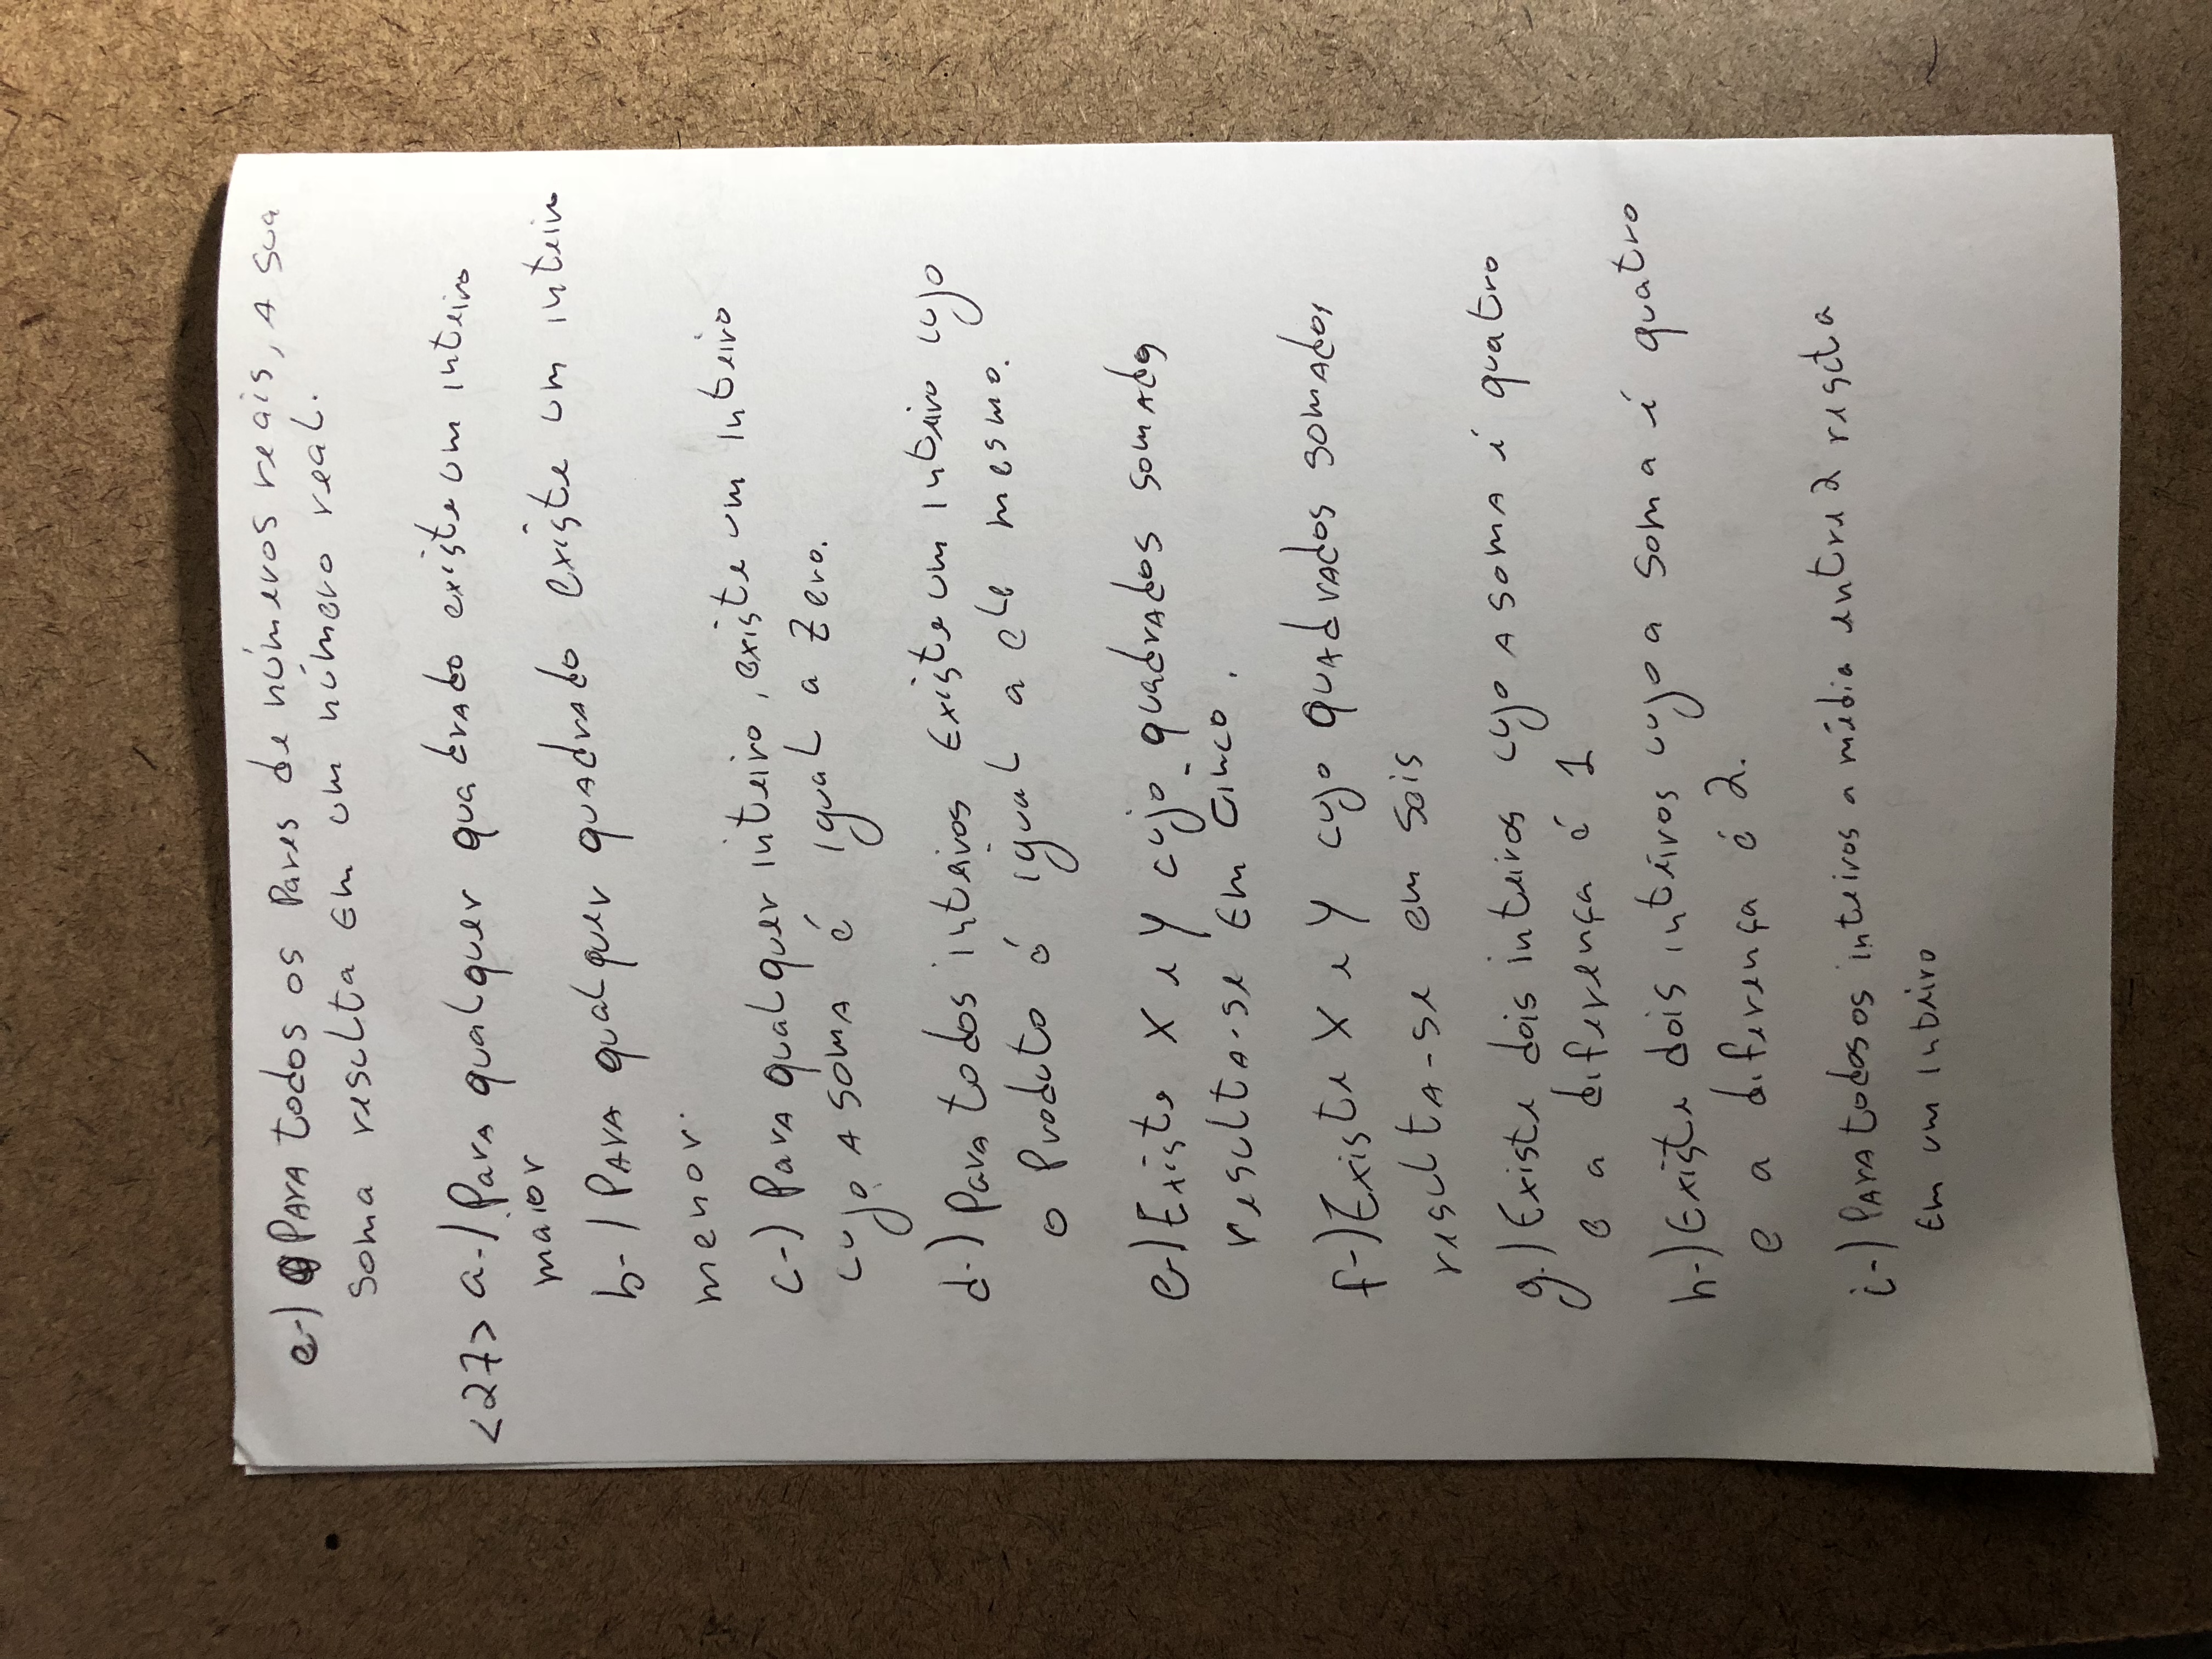 e-) Para todos os Pares de números reais, a sua
soma resulta em um número real.
<27> a-) Para qualquer quadrado existe um inteiro
maior
b-) Para qualquer quadrado existe um inteiro
menor.
c-) Para qualquer inteiro, existe um inteiro
cujo a soma é igual a zero.
d-) Para todos inteiros existe um inteiro cujo
o Produto é igual a ele mesmo.
e-) Existe x e y cujo quadrados somados
resulta-se em cinco.
f-) Existe x e y cujo quadrados somados
resulta-se em seis
g-) Existe dois inteiros cujo a soma é quatro
e a diferença é 1
h-) Existe dois inteiros cujo a soma é quatro
e a diferença é 2.
i-) Para todos os inteiros a média entre 2 resulta
em um inteiro